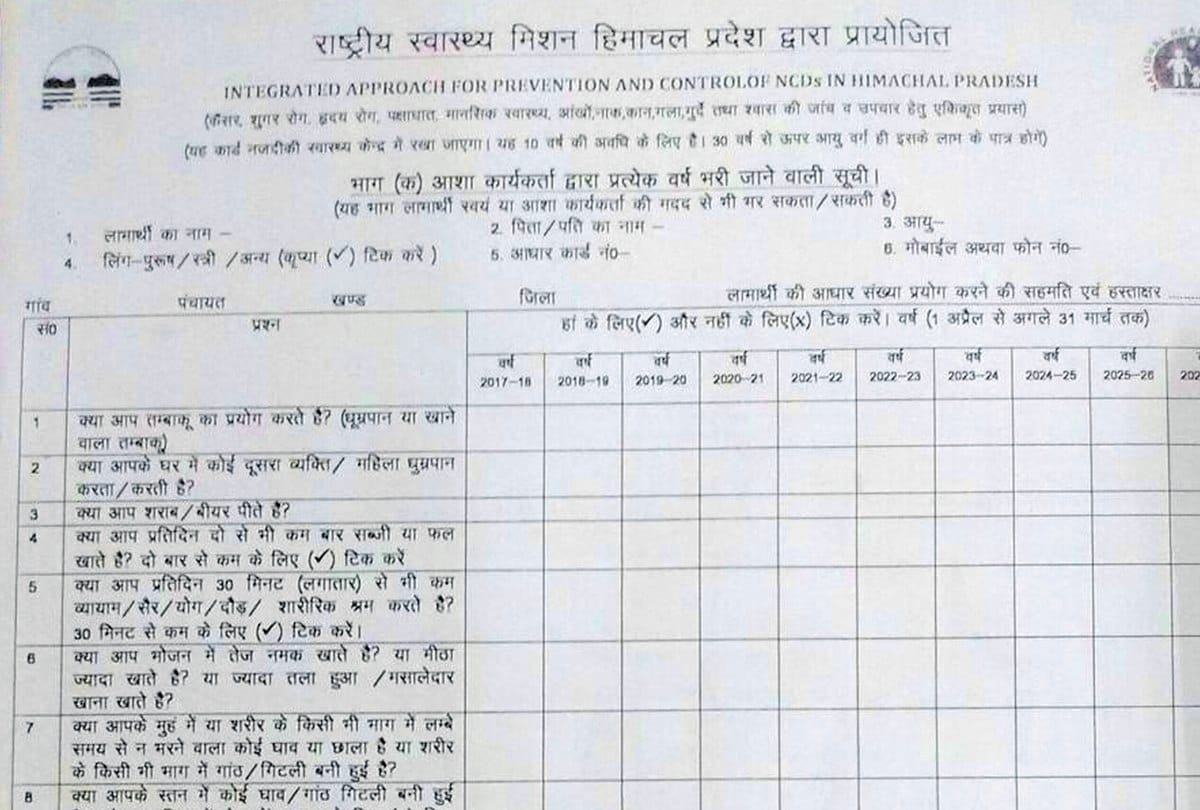 राष्ट्रीय स्वास्थ्य मिशन हिमाचल प्रदेश द्वारा प्रायोजित
INTEGRATED APPROACH FOR PREVENTION AND CONTROLOF NCDs IN HIMACHAL PRADESH
(कैंसर, शुगर रोग, हृदय रोग, पक्षाघात, मानसिक स्वास्थ्य, आंखों,नाक,कान,गला,गुर्दे तथा श्वास की जांच व उपचार हेतु एकिकृत प्रयास)
(यह कार्ड नजदीकी स्वास्थ्य केन्द्र में रखा जाएगा। यह 10 वर्ष की अवधि के लिए है। 30 वर्ष से ऊपर आयु वर्ग ही इसके लाभ के पात्र होगें)
भाग (क) आशा कार्यकर्ता द्वारा प्रत्येक वर्ष भरी जाने वाली सूची।
(यह भाग लाभार्थी स्वयं या आशा कार्यकर्ता की मदद से भी भर सकता/सकती है)
1. लाभार्थी का नाम – 2. पिता/पति का नाम – 3. आयु–
4. लिंग–पुरूष/स्त्री /अन्य (कृप्या (✓) टिक करें ) 5. आधार कार्ड नं0– 6. मोबाईल अथवा फोन नं0–
गांव पंचायत खण्ड जिला लाभार्थी की आधार संख्या प्रयोग करने की सहमति एवं हस्ताक्षर ..........
सं0 प्रश्न हां के लिए(✓) और नहीं के लिए(x) टिक करें। वर्ष (1 अप्रैल से अगले 31 मार्च तक)
वर्ष वर्ष वर्ष वर्ष वर्ष वर्ष वर्ष वर्ष वर्ष
2017–18 2018–19 2019–20 2020–21 2021–22 2022–23 2023–24 2024–25 2025–26 202
1 क्या आप तम्बाकू का प्रयोग करते है? (धूम्रपान या खाने
वाला तम्बाकू)
2 क्या आपके घर में कोई दूसरा व्यक्ति/ महिला धुम्रपान
करता/करती है?
3 क्या आप शराब/बीयर पीते है?
4 क्या आप प्रतिदिन दो से भी कम बार सब्जी या फल
खाते है? दो बार से कम के लिए (✓) टिक करें
5 क्या आप प्रतिदिन 30 मिनट (लगातार) से भी कम
व्यायाम/सैर/योग/दौड़/ शारीरिक श्रम करते है?
30 मिनट से कम के लिए (✓) टिक करें।
6 क्या आप भोजन में तेज नमक खाते है? या मीठा
ज्यादा खाते है? या ज्यादा तला हुआ /मसालेदार
खाना खाते है?
7 क्या आपके मुहं में या शरीर के किसी भी भाग में लम्बे
समय से न भरने वाला कोई घाव या छाला है या शरीर
के किसी भी भाग में गांठ/गिटली बनी हुई है?
8 क्या आपके स्तन में कोई घाव/गांठ गिटली बनी हुई